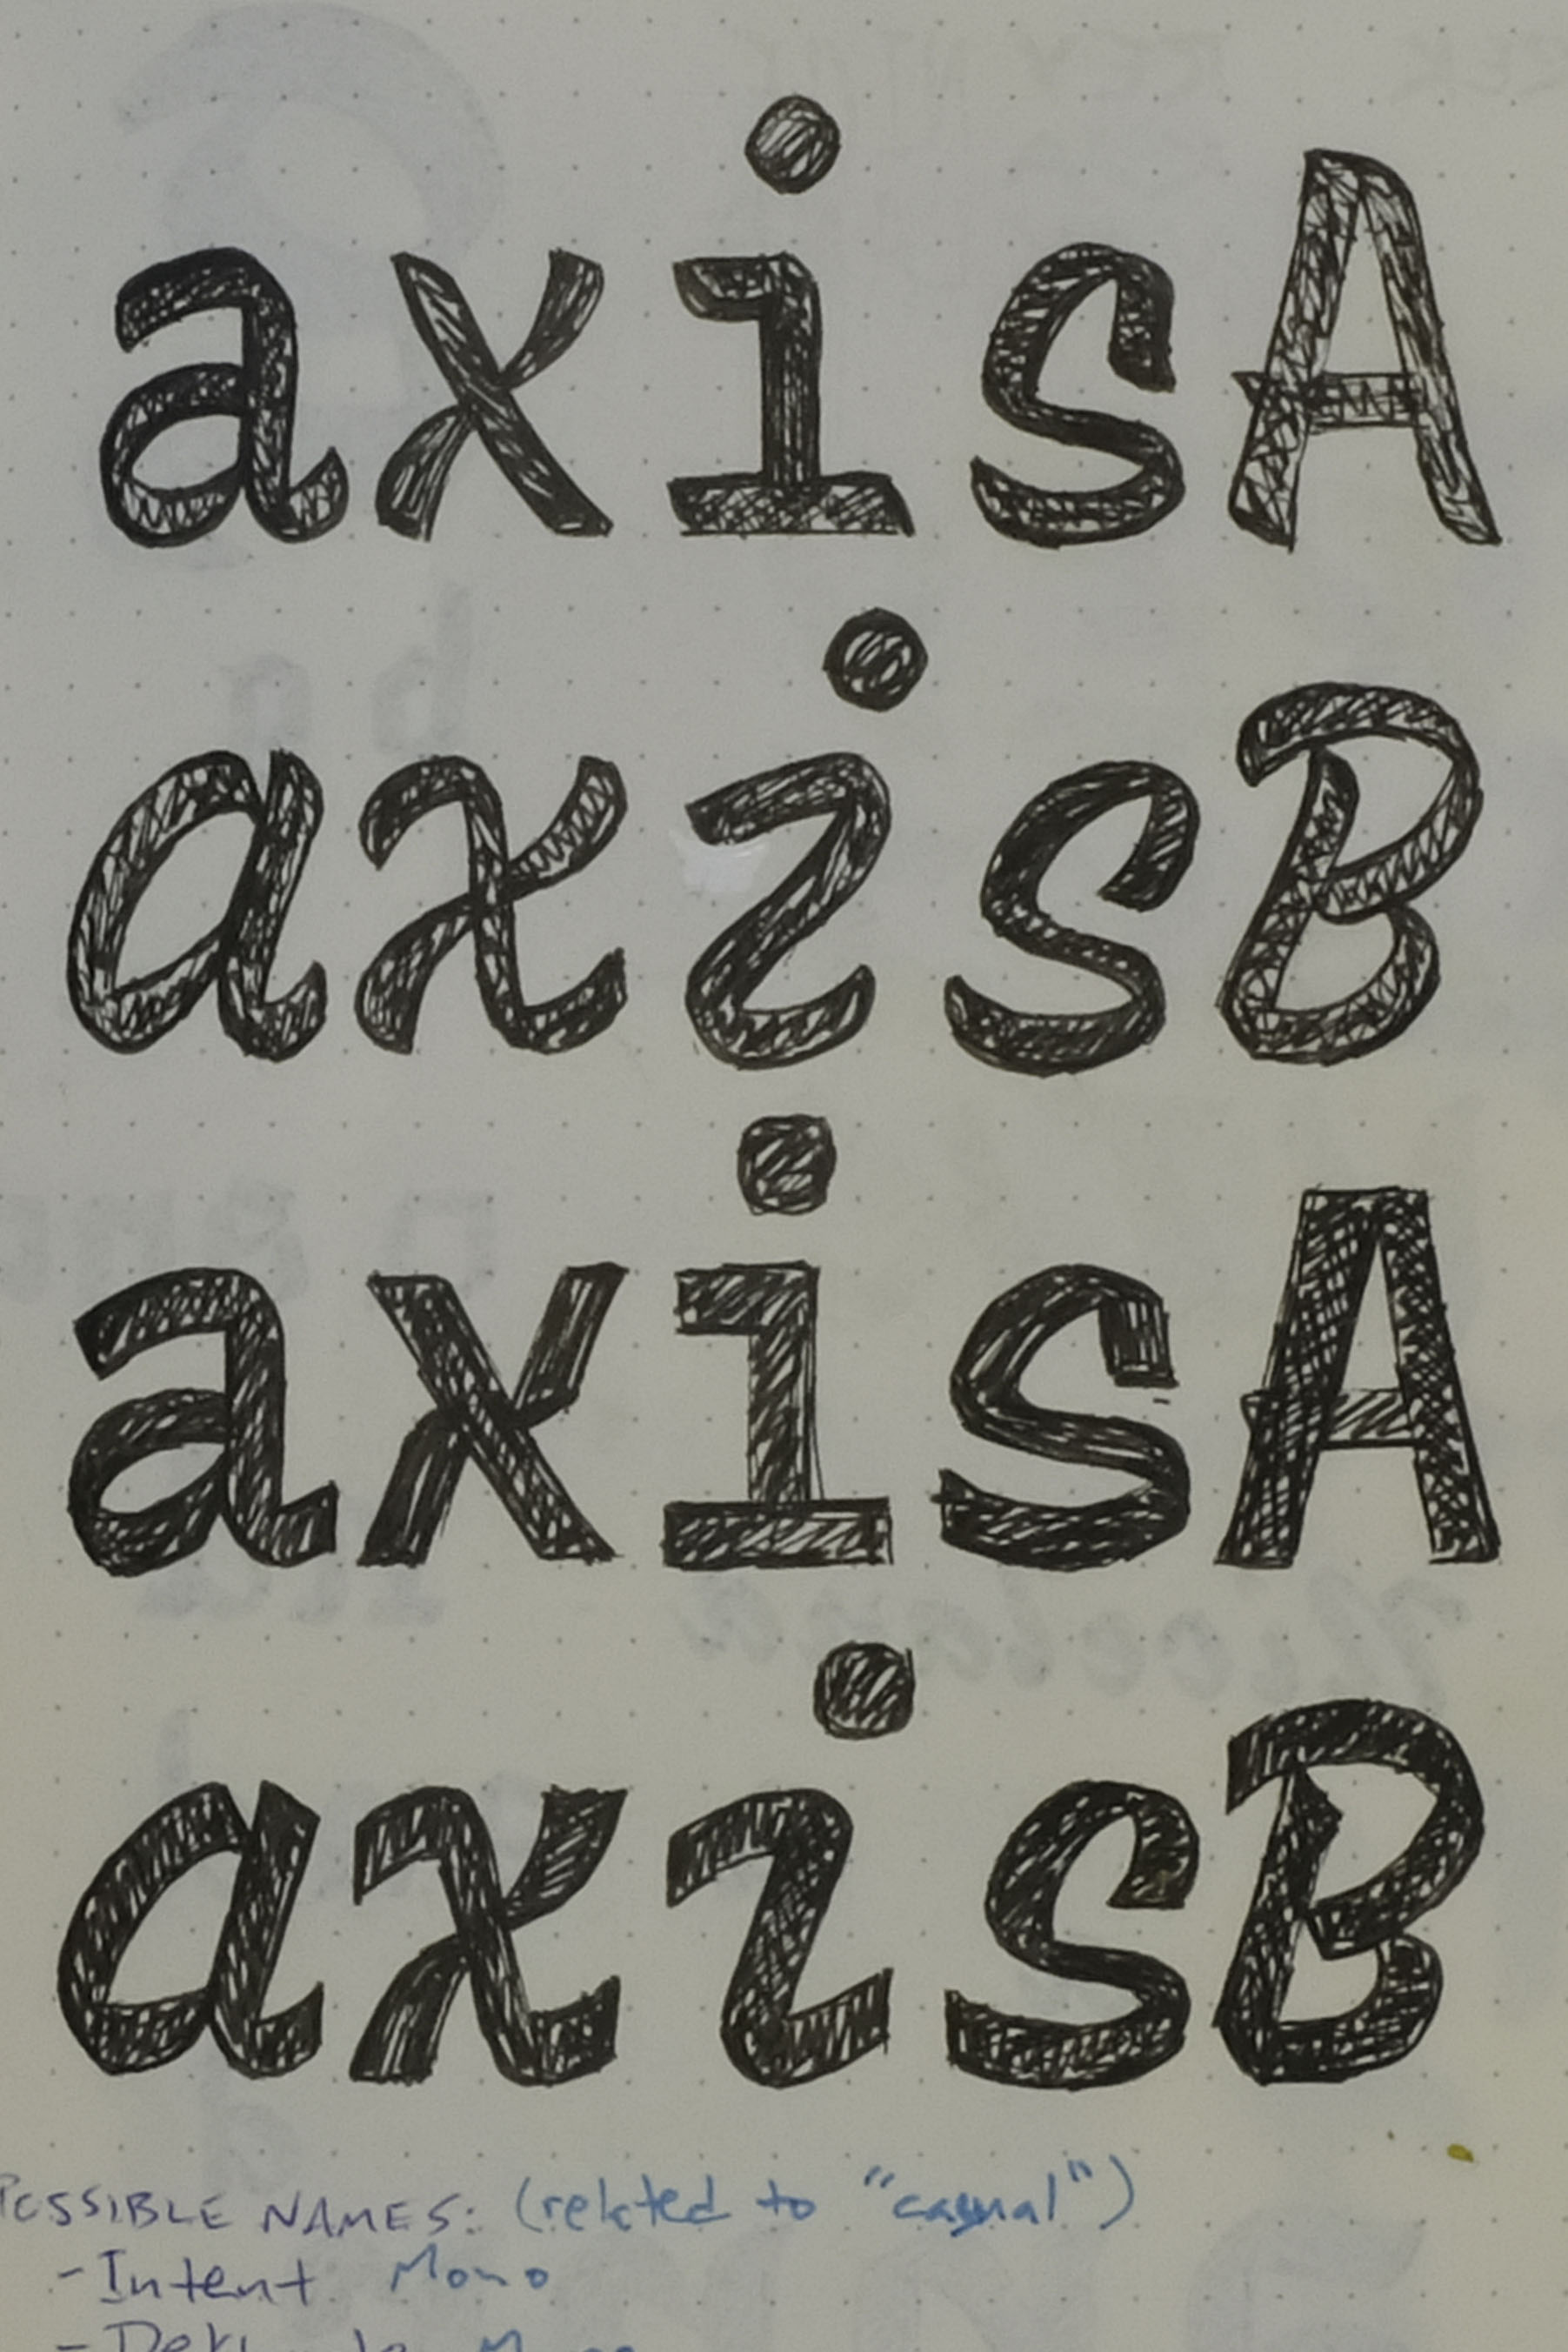 axisA
axisB
axisA
axisB
POSSIBLE NAMES: (related to "casual")
- Intent Mono